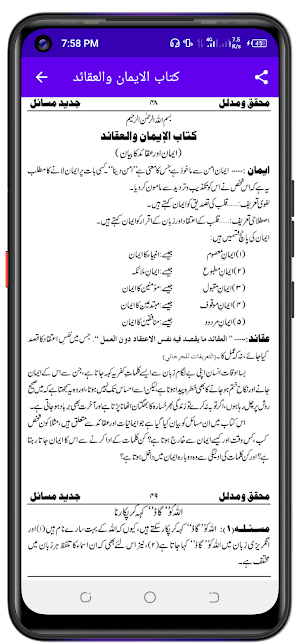 7:58 PM 4G 7.5 K/s 45
کتاب الایمان والعقائد
محقق و مدلل ۴۸ جدید مسائل
بسم اللہ الرحمن الرحیم
کتاب الإیمان والعقائد
(ایمان اور عقائد کا بیان)
ایمان : ..... ایمان امن سے ماخوذ ہے جس کا معنی ہے ’’امن دینا‘‘، کسی بات پر ایمان لانے کا مطلب
یہ ہے کہ اس شخص نے اس کو تکذیب و تردید سے مامون کر دیا۔
لغوی تعریف: ..... قلب کی تصدیق کو ایمان کہتے ہیں۔
اصطلاحی تعریف: ..... قلب کے اعتقاد اور زبان کے اقرار کو ایمان کہتے ہیں۔
ایمان کی پانچ قسمیں ہیں:
(۱) ایمان معصوم جیسے: انبیاء کا ایمان
(۲) ایمان مطبوع جیسے: ایمان ملائکہ
(۳) ایمان مقبول جیسے: مؤمنین کا ایمان
(۴) ایمان موقوف جیسے: مبتدعین کا ایمان
(۵) ایمان مردود جیسے: منافقین کا ایمان
عقائد : ..... ’’ العقائد ما يقصد فيه نفس الاعتقاد دون العمل ‘‘ ۔ جس میں نفس اعتقاد کا قصد
کیا جائے، نہ کہ عمل کا۔ (التعريفات للجرجاني)
بسا اوقات انسان اپنی بے لگام زبان سے ایسے کلمات کفریہ کہہ جاتا ہے، جن سے اس کے ایمان
جانے اور نکاح ختم ہو جانے کا بھی خطرہ پیدا ہوتا ہے، لیکن اسے احساس تک نہیں ہوتا، اور وہ یہ سمجھتا ہے کہ میں صحیح
روش پر چل رہا ہوں، اگر توبہ نہ کرے تو زندگی بھر خسارہ کا بھگتان اٹھانا پڑتا ہے اور آخرت بھی برباد ہو جاتی ہے۔
اس کتاب میں ان مسائل کو بیان کیا گیا ہے جو ایمانیات اور عقائد سے متعلق ہیں، مثلاً کون شخص
کب، کس وقت اور کیسے ایمان سے خارج ہوتا ہے؟ کن کلمات کے ادا کرنے سے اس کا ایمان جاتا رہتا
ہے؟ اور کن کلمات کی ادائیگی سے وہ دوبارہ ایمان میں داخل ہوتا ہے؟
محقق و مدلل ۴۹ جدید مسائل
اللہ کو ’’گاڈ‘‘ کہہ کر پکارنا
مسئلہ (۱): اللہ کو ’’گاڈ‘‘ کہہ کر پکار سکتے ہیں، کیوں کہ اللہ کے بہت سارے نام ہیں (۱) اور
انگریزی زبان میں اللہ کو ’’گاڈ‘‘ کہا جاتا ہے (۲)، نیز اس لئے بھی کہ ان اسماء کا تلفظ ہر زبان میں
مختلف ہے۔